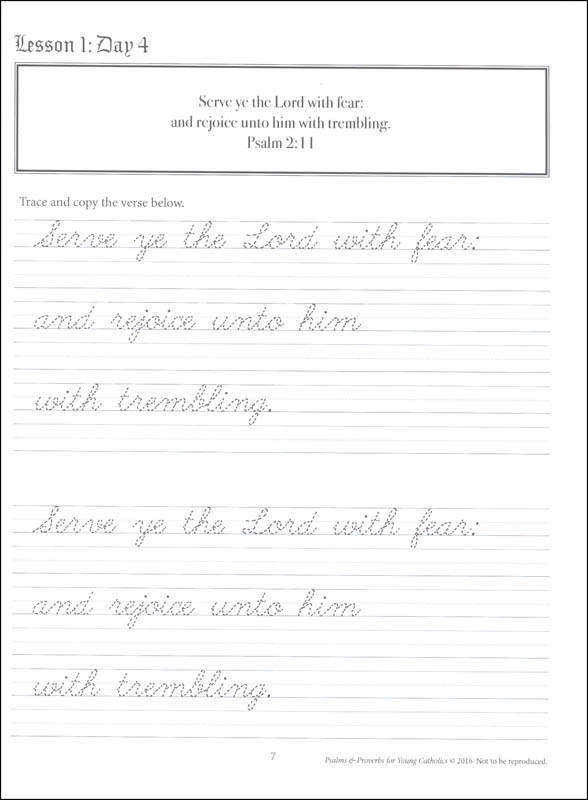 Lesson 1: Day 4
Serve ye the Lord with fear:
and rejoice unto him with trembling.
Psalm 2:11
Trace and copy the verse below.
Serve ye the Lord with fear:
and rejoice unto him
with trembling.
Serve ye the Lord with fear:
and rejoice unto him
with trembling.
7
Psalms & Proverbs for Young Catholics © 2016 Not to be reproduced.